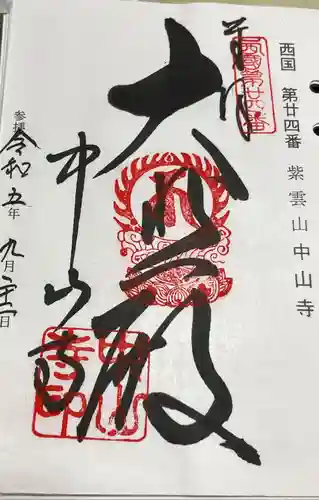 西国 第廿四番 紫雲山中山寺
奉拝
西國第廿四番
大悲殿
中山寺
中山寺印
参拝
令和五年九月二十一日